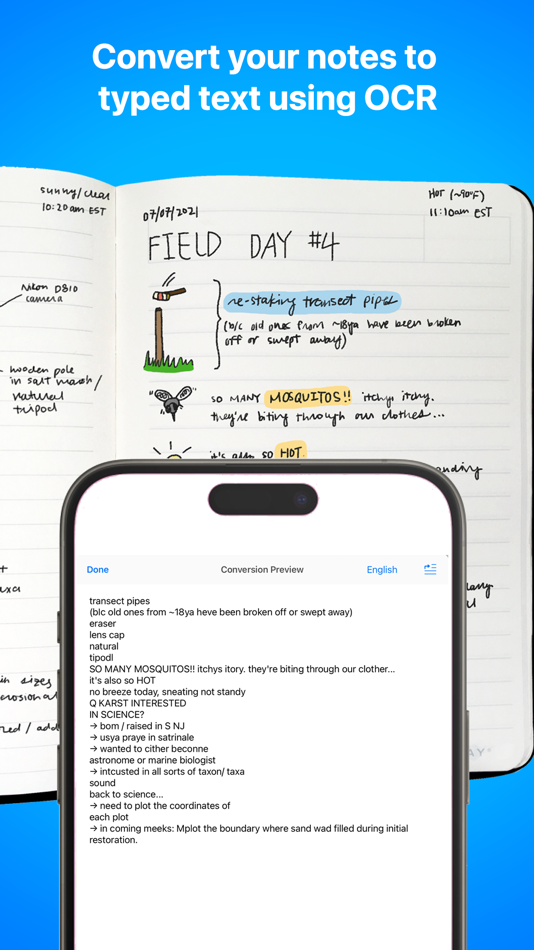 Convert your notes to
typed text using OCR
sunny/clear
10:20am EST
Nikon D810
camera
wooden pole
in salt marsh/
natural
tripod
in sizes
07/07/2021
HOT (~90°F)
11:10am EST
FIELD DAY #4
re-staking transect pipes
(b/c old ones from ~18ya have been broken
off or swept away)
SO MANY MOSQUITOS!! itchy, itchy.
they're biting through our clothes...
it's also SO HOT.
Done
Conversion Preview
English
transect pipes
(blc old ones from ~18ya heve been broken off or swept away)
eraser
lens cap
natural
tipodl
SO MANY MOSQUITOS!! itchys itory. they're biting through our clother...
it's also so HOT
no breeze today, sneating not standy
Q KARST INTERESTED
IN SCIENCE?
→ bom / raised in S NJ
→ usya praye in satrinale
→ wanted to cither beconne
astronome or marine biologist
→ intcusted in all sorts of taxon/ taxa
sound
back to science...
→ need to plot the coordinates of
each plot
→ in coming meeks: Mplot the boundary where sand wad filled during initial
restoration.